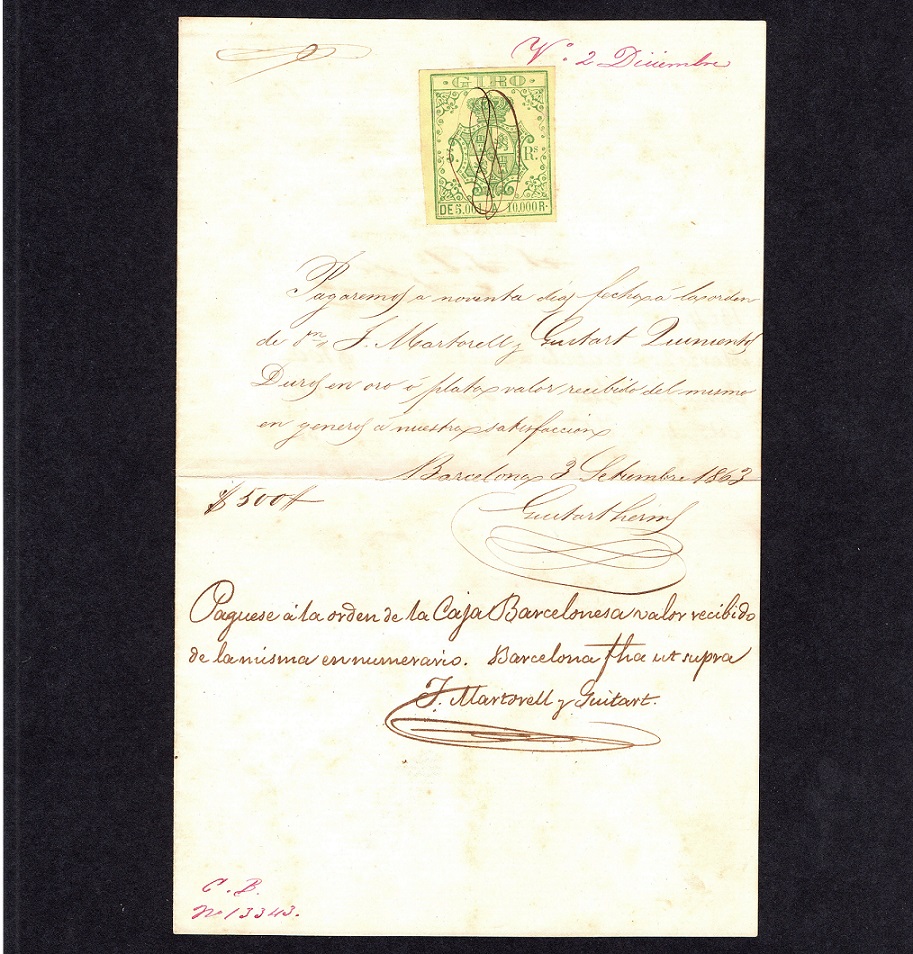 Vº. 2 Diciembre
· GIRO ·
5 Rs.
DE 5.001 A 10.000 R.
Pagaremos a noventa dias fecha á la orden
de Sres. J. Martorell y Guitart Quinientos
Duros en oro ó plata valor recibido del mismo
en generos á nuestra satisfaccion
Barcelona 3 Setiembre 1863
$ 500 ff
Guitart herms
Paguese á la orden de la Caja Barcelonesa valor recibido
de la misma en numerario. Barcelona fha ut supra
J. Martorell y Guitart.
C. B.
No 13343.